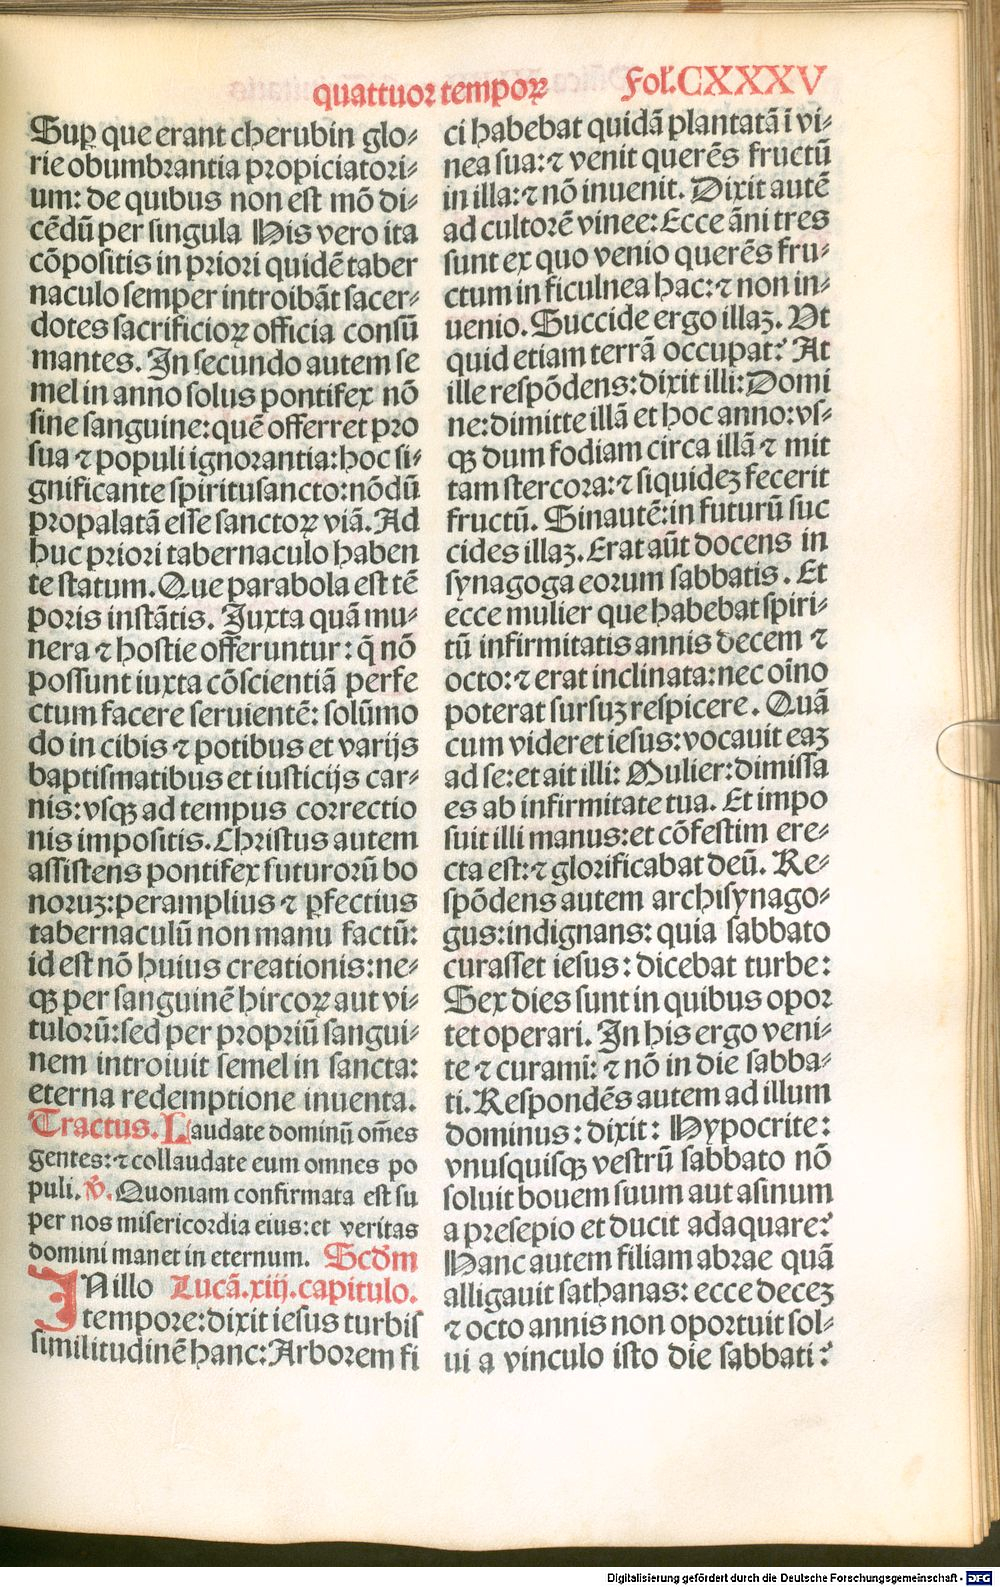 quattuor temporꝝ
Fol.CXXXV
Supꝑ que erant cherubin glo⸗
rie obumbrantia propiciatori⸗
um: de quibus non est mō di⸗
cēdū per singula His vero ita
cōpositis in priori quidē taber
naculo semper introibāt sacer⸗
dotes sacrificioꝝ officia consū
mantes. In secundo autem se
mel in anno solus pontifex nō
sine sanguine: quē offerret pro
sua ⁊ populi ignorantia: hoc si⸗
gnificante spiritusancto: nōdū
propalatā esse sanctoꝝ viā. Ad
huc priori tabernaculo haben
te statum. Que parabola est tē
poris instātis. Iuxta quā mu⸗
nera ⁊ hostie offeruntur: q̄ nō
possunt iuxta cōscientiā perfe
ctum facere seruientē: solūmo
do in cibis ⁊ potibus et varijs
baptismatibus et iusticijs car⸗
nis: vsqꝫ ad tempus correctio
nis impositis. Christus autem
assistens pontifex futurorū bo
noruꝫ: per amplius ⁊ ꝑfectius
tabernaculū non manu factū:
id est nō huius creationis: ne⸗
qꝫ per sanguinē hircoꝝ aut vi⸗
tulorū: sed per propriū sangui⸗
nem introiuit semel in sancta:
eterna redemptione inuenta.
Tractus. Laudate dominū om̄es
gentes: ⁊ collaudate eum omnes po
puli. ℣. Quoniam confirmata est su
per nos misericordia eius: et veritas
domini manet in eternum. Scd̄m
IN illo Lucā. xiij. capitulo.
tempore: dixit iesus turbis
similitudinē hanc: Arborem fi
ci habebat quidā plantatā ī vi⸗
nea sua: ⁊ venit querēs fructū
in illa: ⁊ nō inuenit. Dixit autē
ad cultorē vinee: Ecce āni tres
sunt ex quo venio querēs fru⸗
ctum in ficulnea hac: ⁊ non in⸗
uenio. Succide ergo illaꝫ. Vt
quid etiam terrā occupat? At
ille respōdens: dixit illi: Domi
ne: dimitte illā et hoc anno: vs⸗
qꝫ dum fodiam circa illā ⁊ mit
tam stercora: ⁊ siquideꝫ fecerit
fructū. Sinautē: in futurū suc
cides illaꝫ. Erat aūt docens in
synagoga eorum sabbatis. Et
ecce mulier que habebat spiri⸗
tū infirmitatis annis decem ⁊
octo: ⁊ erat inclinata: nec oīno
poterat sursuꝫ respicere. Quā
cum videret iesus: vocauit eaꝫ
ad se: et ait illi: Mulier: dimissa
es ab infirmitate tua. Et impo
suit illi manus: et cōfestim ere⸗
cta est: ⁊ glorificabat deū. Re⸗
spōdens autem archisynago⸗
gus: indignans: quia sabbato
curasset iesus: dicebat turbe:
Sex dies sunt in quibus opor
tet operari. In his ergo veni⸗
te ⁊ curamī: ⁊ nō in die sabba⸗
ti. Respondēs autem ad illum
dominus: dixit: Hypocrite:
vnusquisqꝫ vestrū sabbato nō
soluit bouem suum aut asinum
a presepio et ducit adaquare?
Hanc autem filiam abrae quā
alligauit sathanas: ecce deceꝫ
⁊ octo annis non oportuit sol⸗
ui a vinculo isto die sabbati?
Digitalisierung gefördert durch die Deutsche Forschungsgemeinschaft - DFG